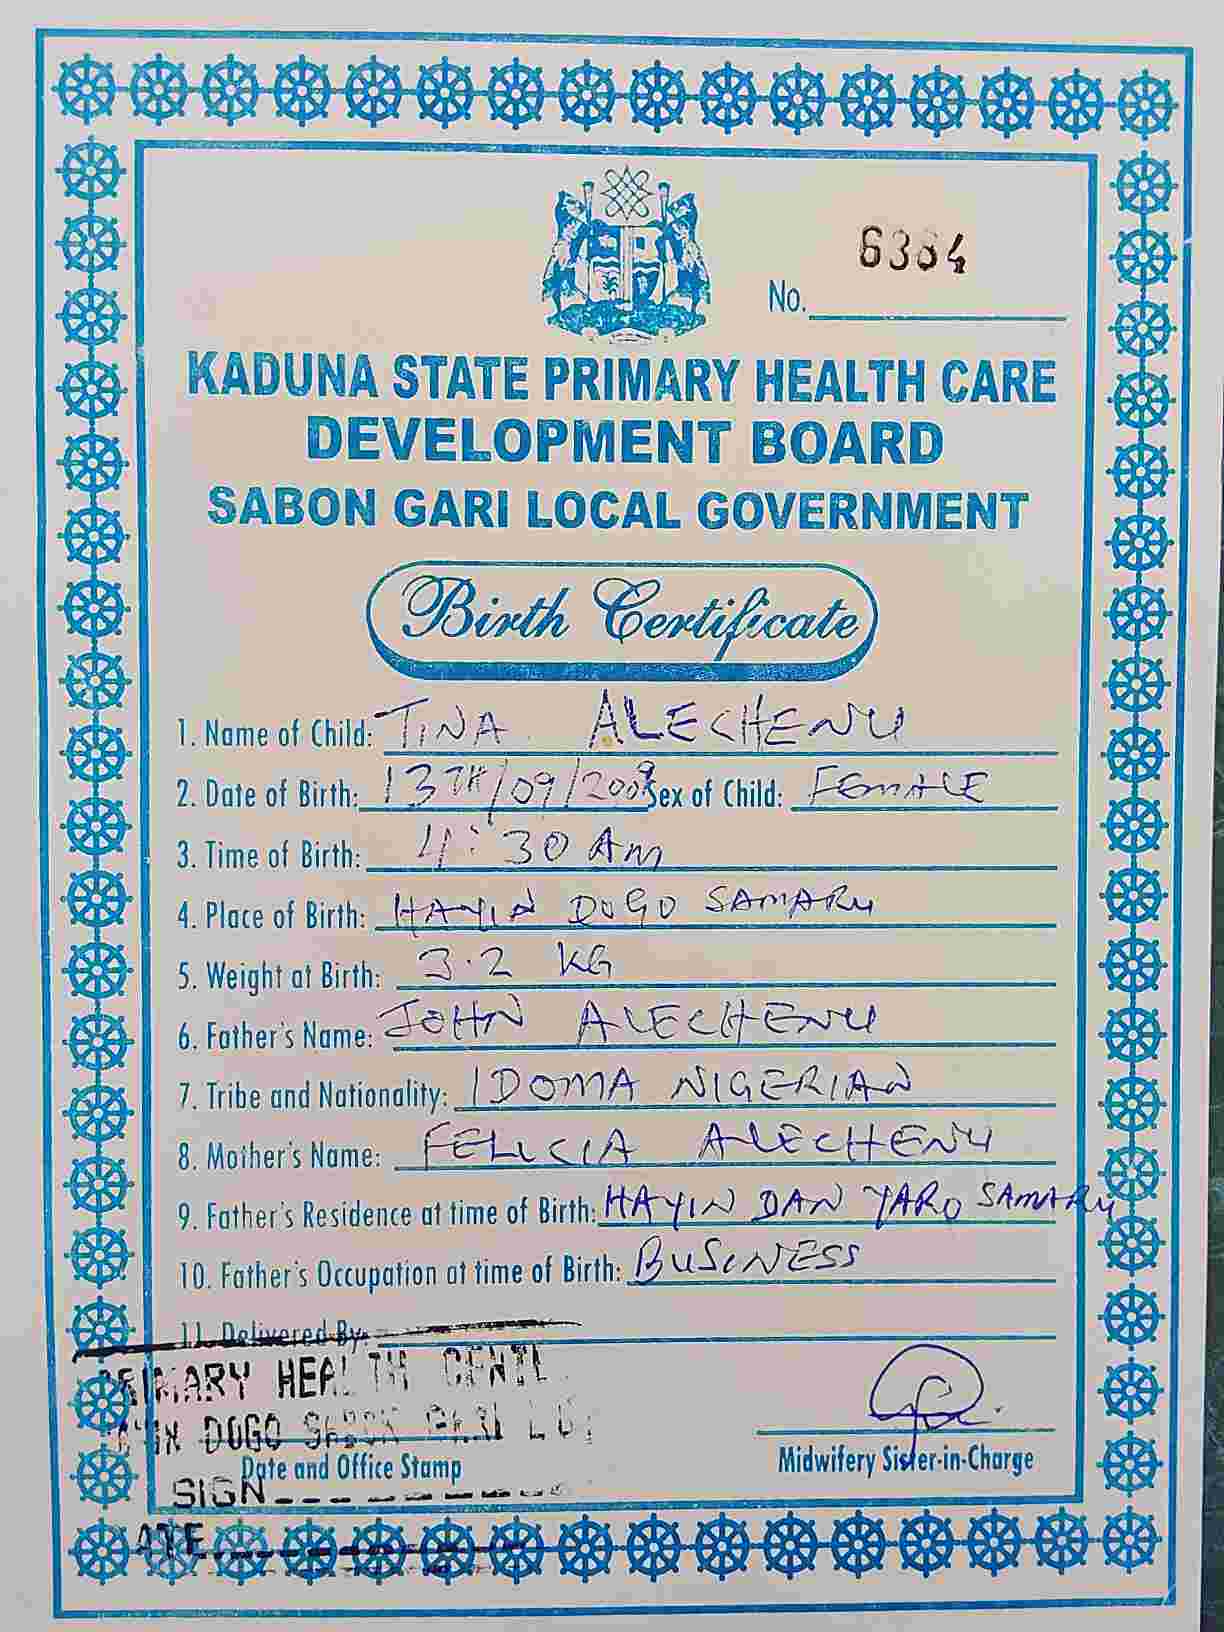 6384
No.
KADUNA STATE PRIMARY HEALTH CARE
DEVELOPMENT BOARD
SABON GARI LOCAL GOVERNMENT
Birth Certificate
1. Name of Child: TINA ALECHENU
2. Date of Birth: 13TH/09/2009 Sex of Child: FEMALE
3. Time of Birth: 4:30 AM
4. Place of Birth: HAYIN DOGO SAMARU
5. Weight at Birth: 3.2 KG
6. Father's Name: JOHN ALECHENU
7. Tribe and Nationality: IDOMA NIGERIAN
8. Mother's Name: FELICIA ALECHENU
9. Father's Residence at time of Birth: HAYIN DAN YARO SAMARU
10. Father's Occupation at time of Birth: BUSINESS
11. Delivered By:
PRIMARY HEALTH
DOGO SABON GARI
Date and Office Stamp
Midwifery Sister-in-Charge
SIGN